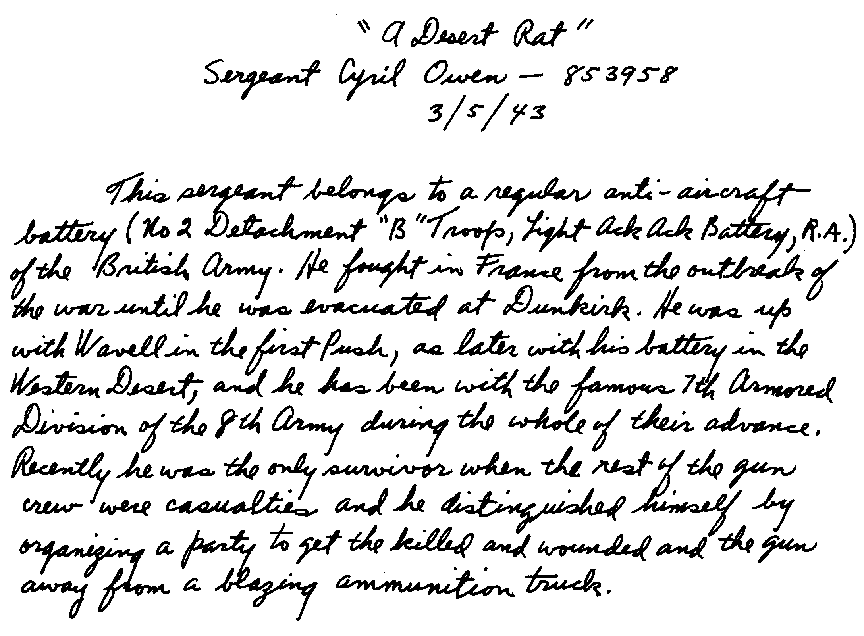 "A Desert Rat"
Sergeant Cyril Owen — 853958
3/5/43
This sergeant belongs to a regular anti-aircraft
battery (No 2 Detachment "B" Troops, Light Ack Ack Battery, R.A.)
of the British Army. He fought in France from the outbreak of
the war until he was evacuated at Dunkirk. He was up
with Wavell in the first Push, as later with his battery in the
Western Desert, and he has been with the famous 7th Armored
Division of the 8th Army during the whole of their advance.
Recently he was the only survivor when the rest of the gun
crew were casualties and he distinguished himself by
organizing a party to get the killed and wounded and the gun
away from a blazing ammunition truck.